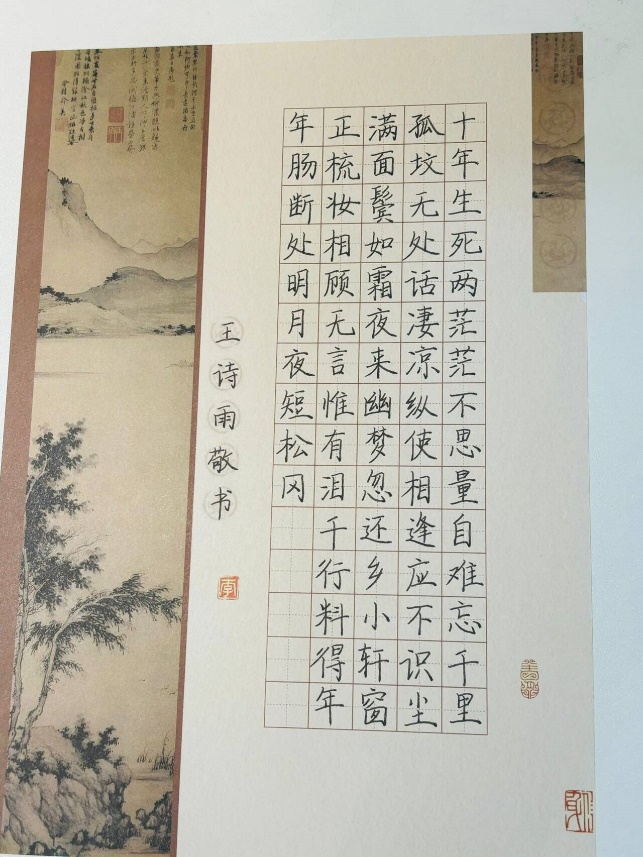 十年生死两茫茫不思量自难忘千里
孤坟无处话凄凉纵使相逢应不识尘
满面鬓如霜夜来幽梦忽还乡小轩窗
正梳妆相顾无言惟有泪千行料得年
年肠断处明月夜短松冈
王诗雨敬书